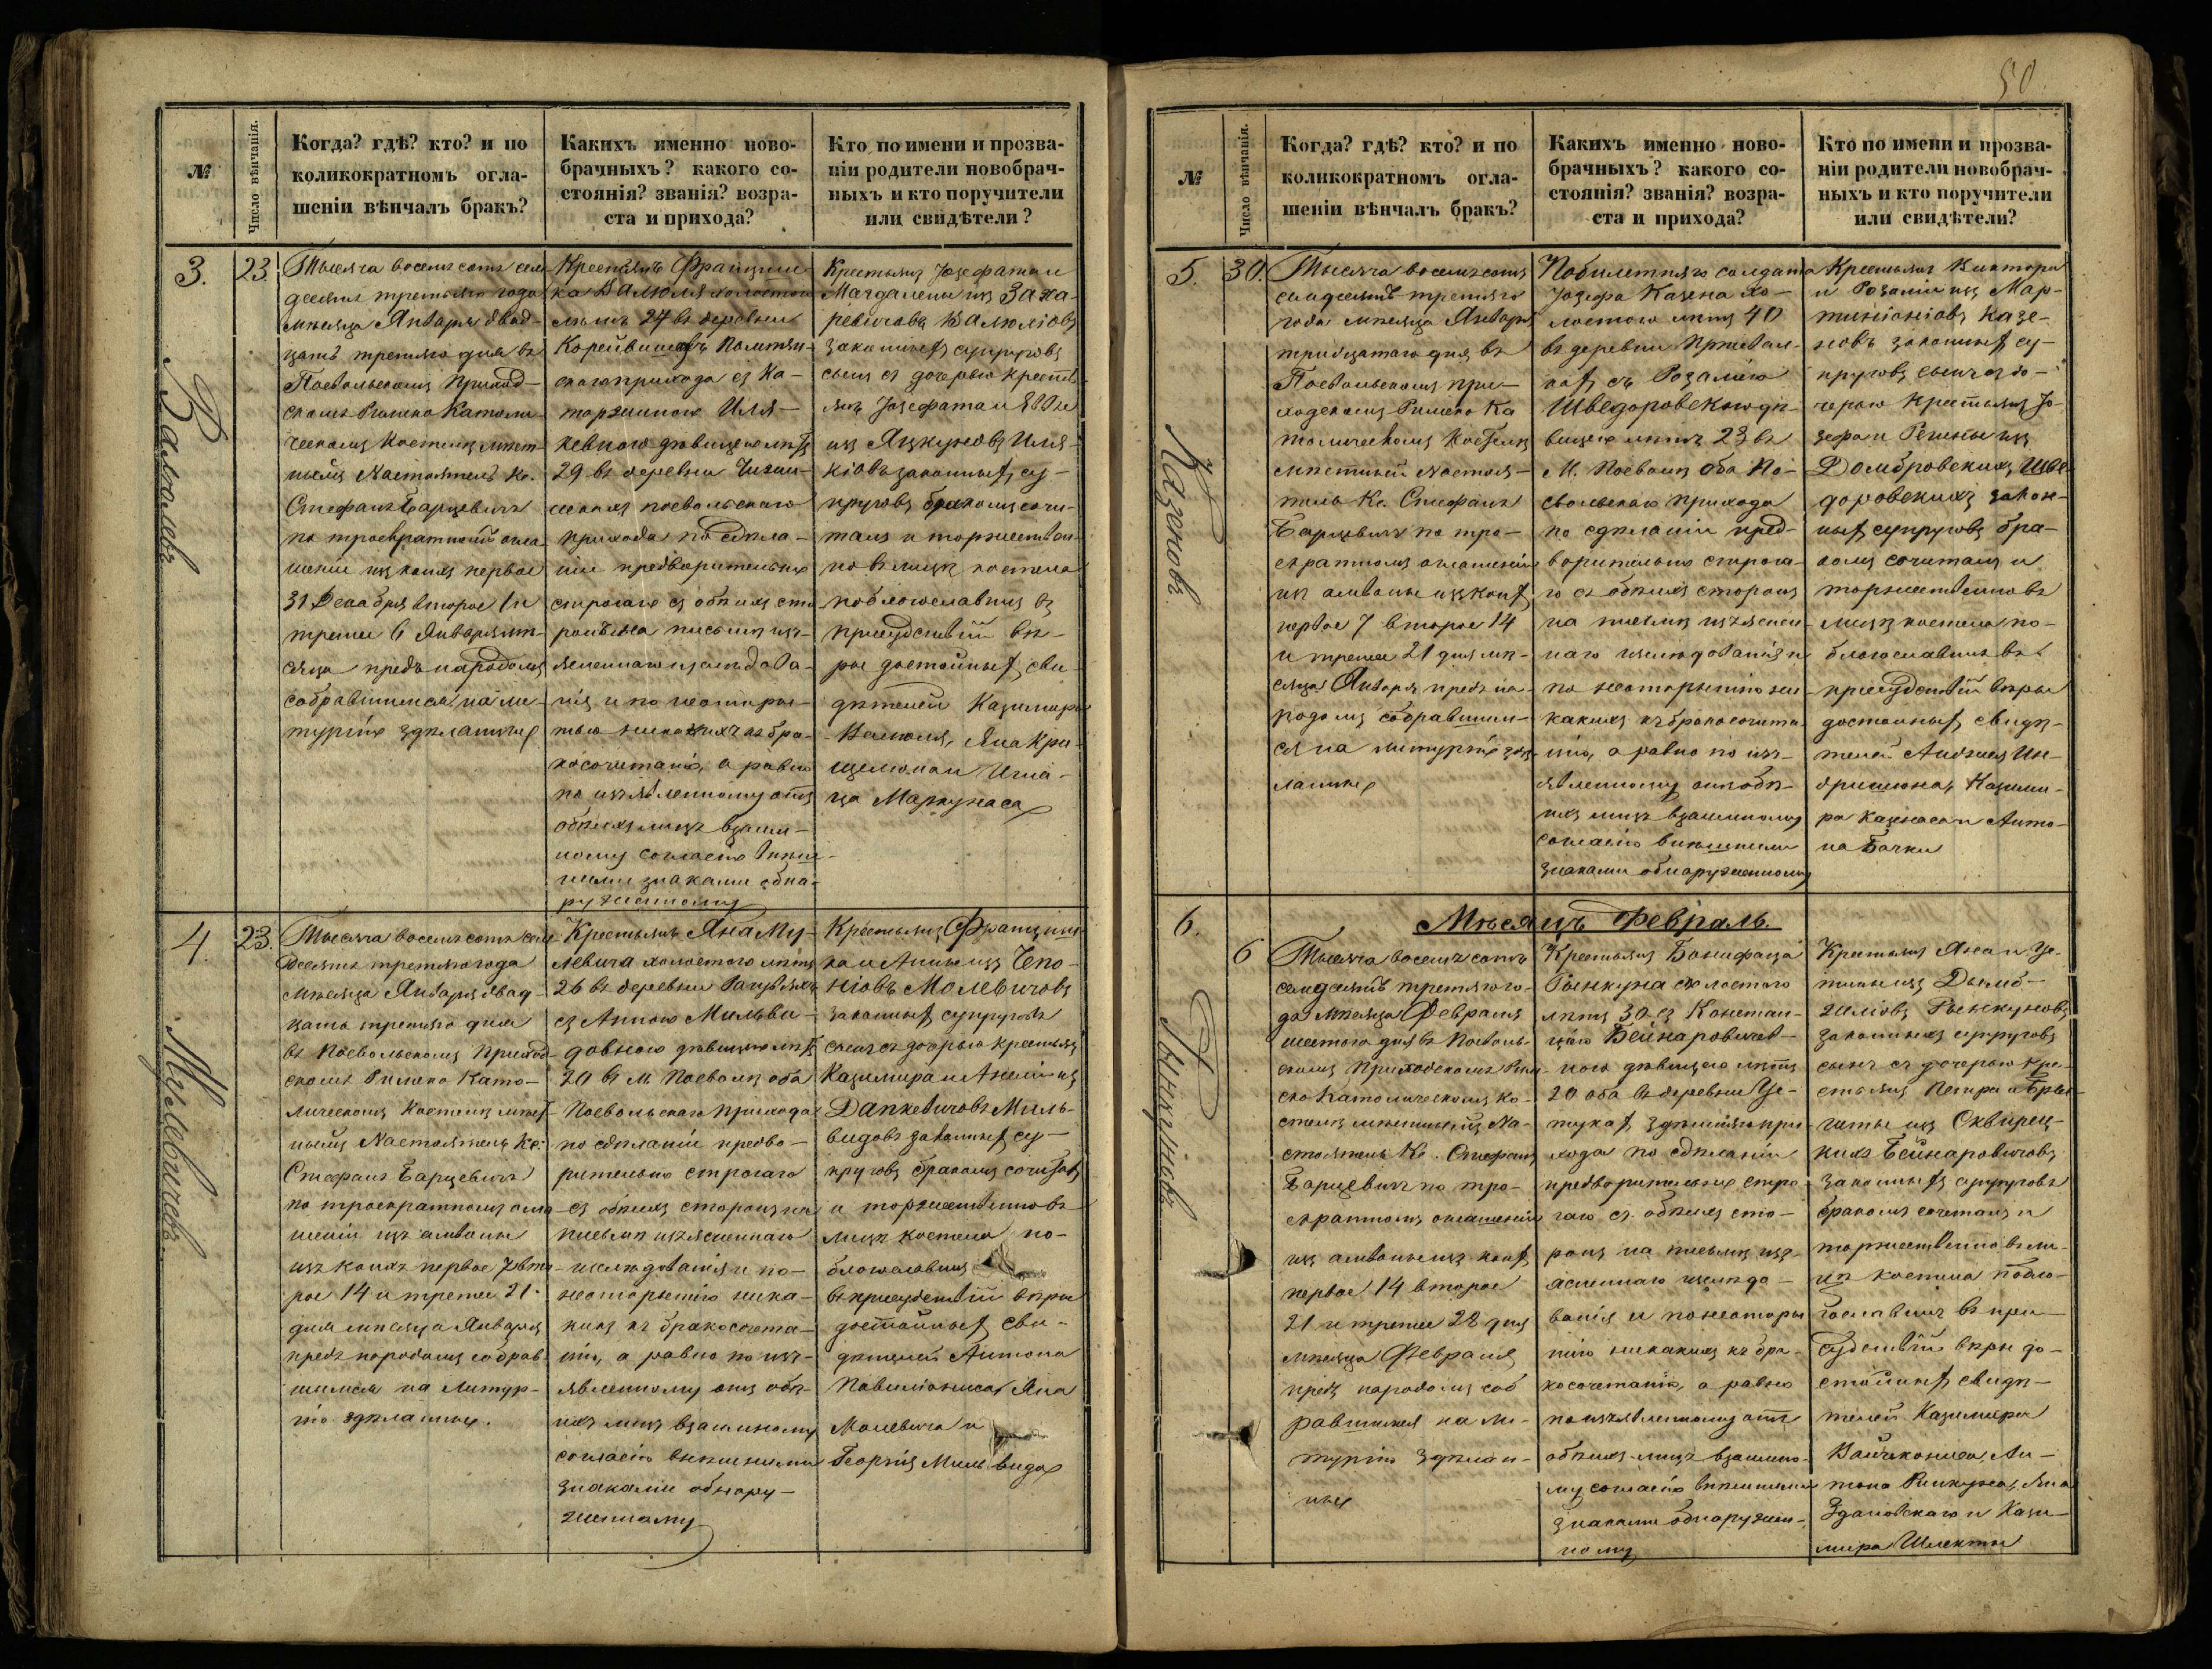 50
№
Число вѣнчанія.
Когда? гдѣ? кто? и по
коликократномъ огла-
шеніи вѣнчалъ бракъ?
Какихъ именно ново-
брачныхъ? какого со-
стоянія? званія? возра-
ста и прихода?
Кто по имени и прозва-
ніи родители новобрач-
ныхъ и кто поручители
или свидѣтели?
3.
23
Тысяча восемь сотъ сем
десятъ третьяго года
мѣсяца Января двад-
цать третьяго дня въ
Поевольскомъ Приход-
скомъ Римско Католи-
ческомъ Костелѣ мѣст-
ный Настоятель Кс.
Стефанъ Барцевичъ
по троекратномъ огла
шеніи изъ коихъ первое
31 Декабря второе 1 и
третіе 6 Января мѣ-
сяца предъ народомъ
собравшимся на ли-
тургію
Крестьянъ Францишка
ка Валюля холостого
лѣтъ 27 въ деревни
скаго прихода съ Ка-
торжиною Иля-
кевною дѣвицею лѣтъ
29 въ деревни
поевольскаго
прихода по сдѣла-
ніи предварительнаго
строгаго съ обѣихъ сто
ронъ на письмѣ изъ-
ясненнаго изслѣдова-
нія и по неоткры-
тію никакихъ къ бра-
косочетанію, а равно
по изъявленному отъ
обѣихъ лицъ взаим-
ному согласію внѣш-
ними знаками обна-
руженному
Крестьянъ Іозефата и
Магдалены изъ Заха-
ревичовъ Валюліовъ
законныхъ супруговъ
сына съ дочерью крестья
янъ Іозефата и Евы
изъ Яцкуновъ Иля-
кіовъ законныхъ су-
пруговъ бракомъ соче-
талъ и торжествен-
но въ лицѣ костела
поблагославилъ въ
присудствіи вѣ-
ры достойныхъ сви-
дѣтелей Казимира
Валюля, Яна Кри-
щелюна и Игна-
ца Маркунаса
Валюлевъ
4.
23.
Тысяча восемь сотъ сем
десятъ третьяго года
мѣсяца Января двад-
цать третьяго дня
въ Поевольскомъ Приход-
скомъ Римско Като-
лическомъ Костелѣ мѣст
ный Настоятель Кс.
Стефанъ Барцевичъ
по троекратномъ огла
шеніи изъ амвоны
изъ коихъ первое 7 вто-
рое 14 и третіе 21
дня мѣсяца Января
предъ народомъ собрав
шимся на Литур-
гію
Крестьянъ Яна Му-
левича холостого лѣтъ
26 въ деревни
съ Анною Мильви-
довною дѣвицею лѣтъ
20 въ М. Поеволѣ оба
Поевольскаго прихода
по сдѣланіи предва-
рительно строгаго
съ обѣихъ сторонъ на
письмѣ изъясненнаго
изслѣдованія и по
неоткрытію ника-
кихъ къ бракосочета-
нію, а равно по изъ-
явленному отъ обѣ-
ихъ лицъ взаимному
согласію внѣшними
знаками обнару-
женному
Крестьянъ Франциш
ка и Анны изъ Чепо-
ніовъ Молевичовъ
законныхъ супруговъ
сына съ дочерью крестьянъ
Казимира и Анеліи изъ
Данкевичовъ Миль-
видовъ законныхъ су-
пруговъ бракомъ сочеталъ
и торжественно въ
лицѣ костела по-
благославилъ
въ присудствіи вѣры
достойныхъ сви-
дѣтелей Антона
Павиланиса, Яна
Молевича и
Георгія Мильвида
Мулевичевъ.
№
Число вѣнчанія.
Когда? гдѣ? кто? и по
коликократномъ огла-
шеніи вѣнчалъ бракъ?
Какихъ именно ново-
брачныхъ? какого со-
стоянія? званія? возра-
ста и прихода?
Кто по имени и прозва-
ніи родители новобрач-
ныхъ и кто поручители
или свидѣтели?
5.
30.
Тысяча восемь сотъ
семдесятъ третьяго
года мѣсяца Января
тридцатаго дня въ
Поевольскомъ При-
ходскомъ Римско Ка
толическомъ Костелѣ
мѣстный Настоя-
тель Кс. Стефанъ
Барцевичъ по трое-
кратномъ оглашеніи
изъ амвоны изъ коихъ
первое 7 второе 14
и третіе 21 дня мѣ-
сяца Января предъ на-
родомъ собравшим-
ся на литургію
Побилетняго солдата
Іозефа Казена хо-
лостого лѣтъ 40
въ деревни
съ Розаліею
Шведоровскою дѣ-
вицею лѣтъ 23 въ
М. Поеволѣ оба По-
евольскаго прихода
по сдѣланіи пред-
варительно строга-
го съ обѣихъ сторонъ
на письмѣ изъяснен-
наго изслѣдованія и
по неоткрытію ни-
какихъ къ бракосочета
нію, а равно по изъ-
явленному отъ обѣ-
ихъ лицъ взаимному
согласію внѣшними
знаками обнаруженному
Крестьянъ Виктора
и Розаліи изъ Мар-
тиніоніовъ Казе-
новъ законныхъ су-
пруговъ сына съ до-
черью Крестьянъ Іо-
зефа и Регины изъ
Домбровскихъ Шве
доровскихъ закон-
ныхъ супруговъ бра-
комъ сочеталъ и
торжественно въ
лицѣ костела по-
благославилъ въ
присудствіи вѣры
достойныхъ свидѣ-
телей Андрея Ин-
дришюна, Казими-
ра Казенаса и Анто-
на Бачки
Казеновъ
6.
Мѣсяцъ Февраль.
6
Тысяча восемь сотъ
семдесятъ третьяго го-
да Мѣсяца Февраля
шестого дня въ Поеволь-
скомъ Приходскомъ Рим
ско Католическомъ Ко-
стелѣ мѣстный На-
стоятель Кс. Стефанъ
Барцевичъ по трое-
кратномъ оглашеніи
изъ амвоны изъ коихъ
первое 14 второе
21 и третіе 28 дня
мѣсяца Февраля
предъ народомъ соб
равшимся на Ли-
тургію
Крестьянъ Бонифаца
Рынкуна холостого
лѣтъ 30 съ Констан-
ціею Бейнаровичев-
ною дѣвицею лѣтъ
20 оба въ деревни
здѣшняго при-
хода по сдѣланіи
предварительно стро
гаго съ обѣихъ сто-
ронъ на письмѣ изъ-
ясненнаго изслѣдо-
ванія и по неоткры
тію никакихъ къ бра-
косочетанію, а равно
по изъявленному отъ
обѣихъ лицъ взаимно-
му согласію внѣшними
знаками обнаружен-
ному
Крестьянъ Яна и Ус-
тины изъ
Рынкуновъ
законныхъ супруговъ
сына съ дочерью кре-
стьянъ Петра и Бри-
гиты изъ Сквирец-
кихъ Бейнаровичовъ
законныхъ супруговъ
бракомъ сочеталъ и
торжественно въ ли-
цѣ костела побла-
гославилъ въ при-
судствіи вѣры до-
стойныхъ свидѣ-
телей Казимира
Вайчкониса, Ан-
тона Ринкуна, Яна
Здановскаго и Кази-
мира Шлекты
Рынкуновъ